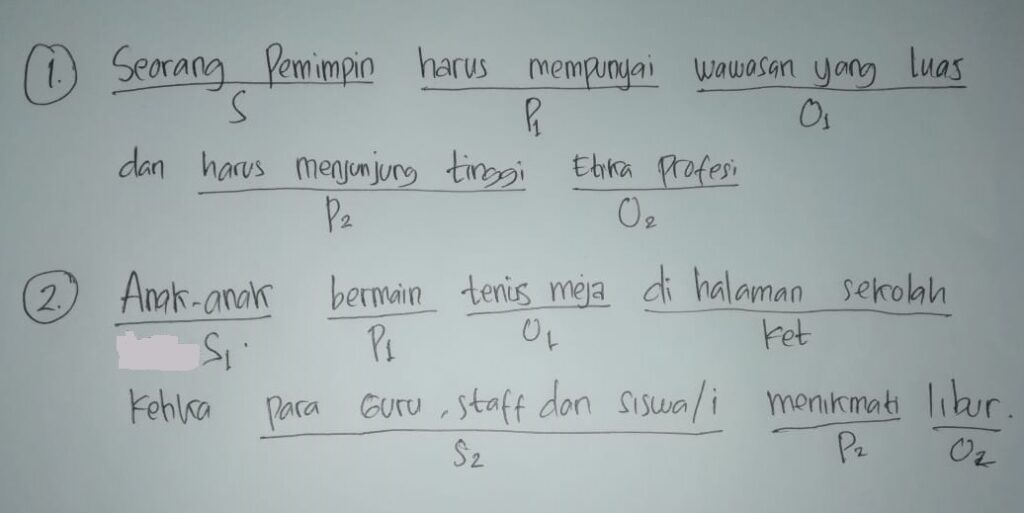 1. Seorang Pemimpin harus mempunyai wawasan yang luas
S P1 O1
dan harus menjunjung tinggi Etika Profesi
P2 O2
2. Anak-anak bermain tenis meja di halaman sekolah
S1. P1 O1 Ket
Ketika para Guru, staff dan siswa/i menikmati libur.
S2 P2 O2